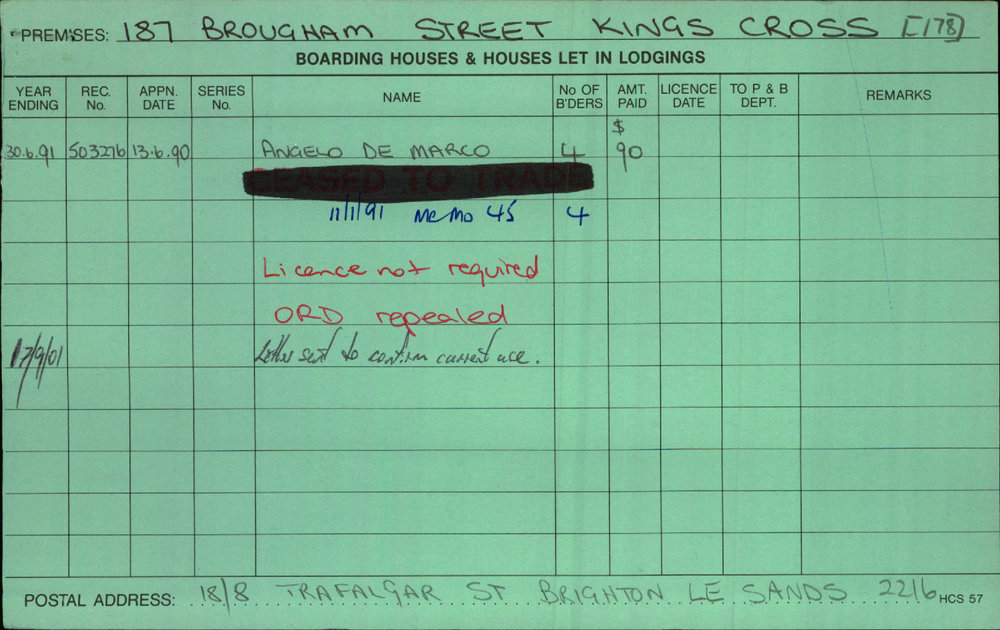 PREMISES: 187 BROUGHAM STREET KINGS CROSS [178]
BOARDING HOUSES & HOUSES LET IN LODGINGS
YEAR ENDING REC. No. APPN. DATE SERIES No. NAME No OF B'DERS AMT. PAID LICENCE DATE TO P & B DEPT. REMARKS
$
30.6.91 503276 13.6.90 ANGELO DE MARCO 4 90
CEASED TO TRADE
11/1/91 MEMO 45 4
Licence not required
ORD repealed
17/9/01 Letter sent to confirm current use.
POSTAL ADDRESS: 18/8 TRAFALGAR ST BRIGHTON LE SANDS 2216 HCS 57